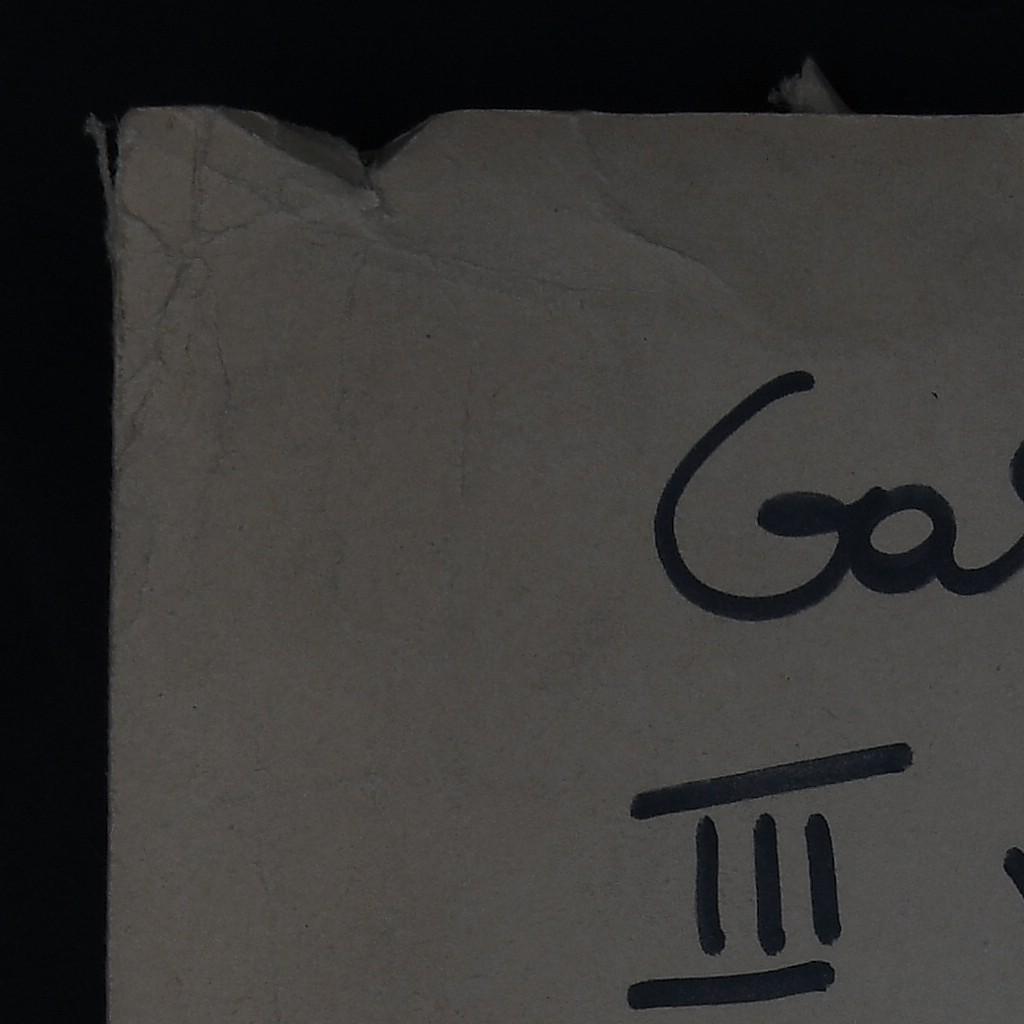 Ga
III